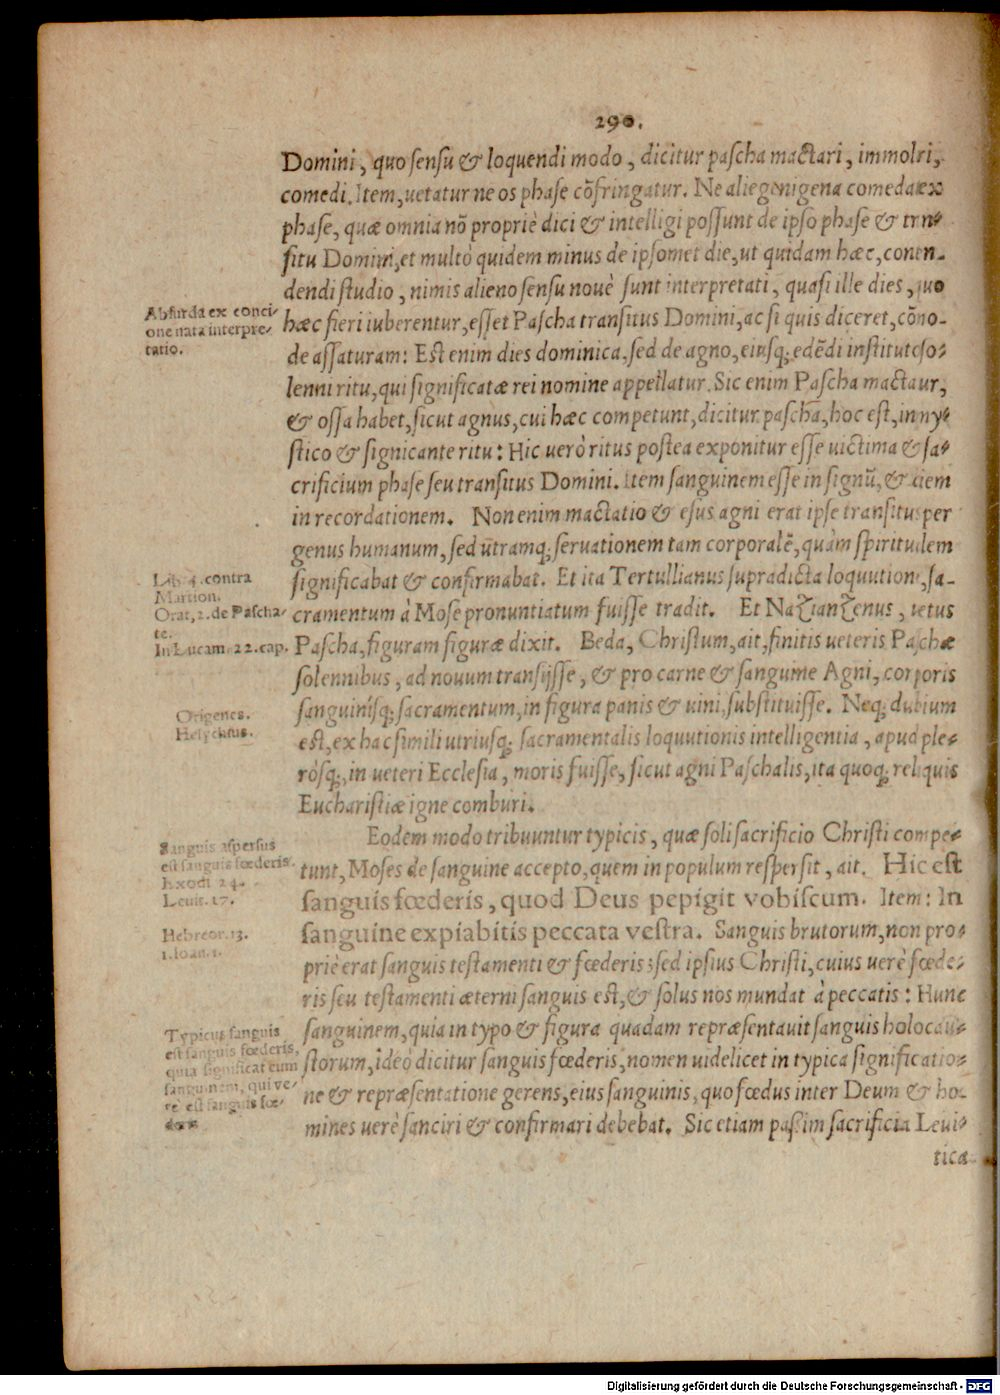 290.
Domini, quo sensu & loquendi modo, dicitur pascha mactari, immolri,
comedi. Item, uetatur ne os phase cōfringatur. Ne aliegenigena comedat ex
phase, quæ omnia nō propriè dici & intelligi possunt de ipso phase & trn-
situ Domini, et multò quidem minus de ipsomet die, ut quidam hæc, conten-
dendi studio, nimis alieno sensu nouè sunt interpretati, quasi ille dies, quo
Absurda ex conci-
one nata interpre-
tatio.
hæc fieri iuberentur, esset Pascha transitus Domini, ac si quis diceret, cōno-
de assaturam: Est enim dies dominica, sed de agno, eiusq; edēdi institute so-
lenni ritu, qui significatæ rei nomine appellatur. Sic enim Pascha mactaur,
& ossa habet, sicut agnus, cui hæc competunt, dicitur pascha, hoc est, in my-
stico & signicante ritu: Hic uerò ritus postea exponitur esse uictima & sa-
crificium phase seu transitus Domini. Item sanguinem esse in signū, & ciem
in recordationem. Non enim mactatio & esus agni erat ipse transitus per
genus humanum, sed utramq; seruationem tam corporalē, quàm spiritualem
Lib. 4. contra
Martion.
Orat. 2. de Pascha-
te.
In Lucam. 22. cap.
significabat & confirmabat. Et ita Tertullianus supradicta loquutione, sa-
cramentum à Mose pronuntiatum fuisse tradit. Et Nazianzenus, uetus
Pascha, figuram figuræ dixit. Beda, Christum, ait, finitis ueteris Paschæ
solennibus, ad nouum transijsse, & pro carne & sanguine Agni, corporis
sanguinísq; sacramentum, in figura panis & uini, substituisse. Neq; dubium
Origenes.
Hesychius.
est, ex hac simili utriusq; sacramentalis loquutionis intelligentia, apud ple-
rósq;, in ueteri Ecclesia, moris fuisse, sicut agni Paschalis, ita quoq; reliquis
Eucharistiæ igne comburi.
Eodem modo tribuuntur typicis, quæ soli sacrificio Christi compe-
Sanguis aspersus
est sanguis fœderis.
Exodi 24.
Leuit. 17.
tunt, Moses de sanguine accepto, quem in populum respersit, ait. Hic est
sanguis fœderis, quod Deus pepigit vobiscum. Item: In
Hebreor. 13.
1. Ioan. 1.
sanguine expiabitis peccata vestra. Sanguis brutorum, non pro-
priè erat sanguis testamenti & fœderis: sed ipsius Christi, cuius uerè fœde-
ris seu testamenti æterni sanguis est, & solus nos mundat à peccatis: Hunc
Typicus sanguis
est sanguis fœderis,
quia significat eum
sanguinem, qui ve-
re est sanguis fœ-
deris
sanguinem, quia in typo & figura quadam repræsentauit sanguis holocau-
storum, ideò dicitur sanguis fœderis, nomen uidelicet in typica significatio-
ne & repræsentatione gerens, eius sanguinis, quo fœdus inter Deum & ho-
mines uerè sanciri & confirmari debebat. Sic etiam passim sacrificia Leui-
tica
Digitalisierung gefördert durch die Deutsche Forschungsgemeinschaft - DFG